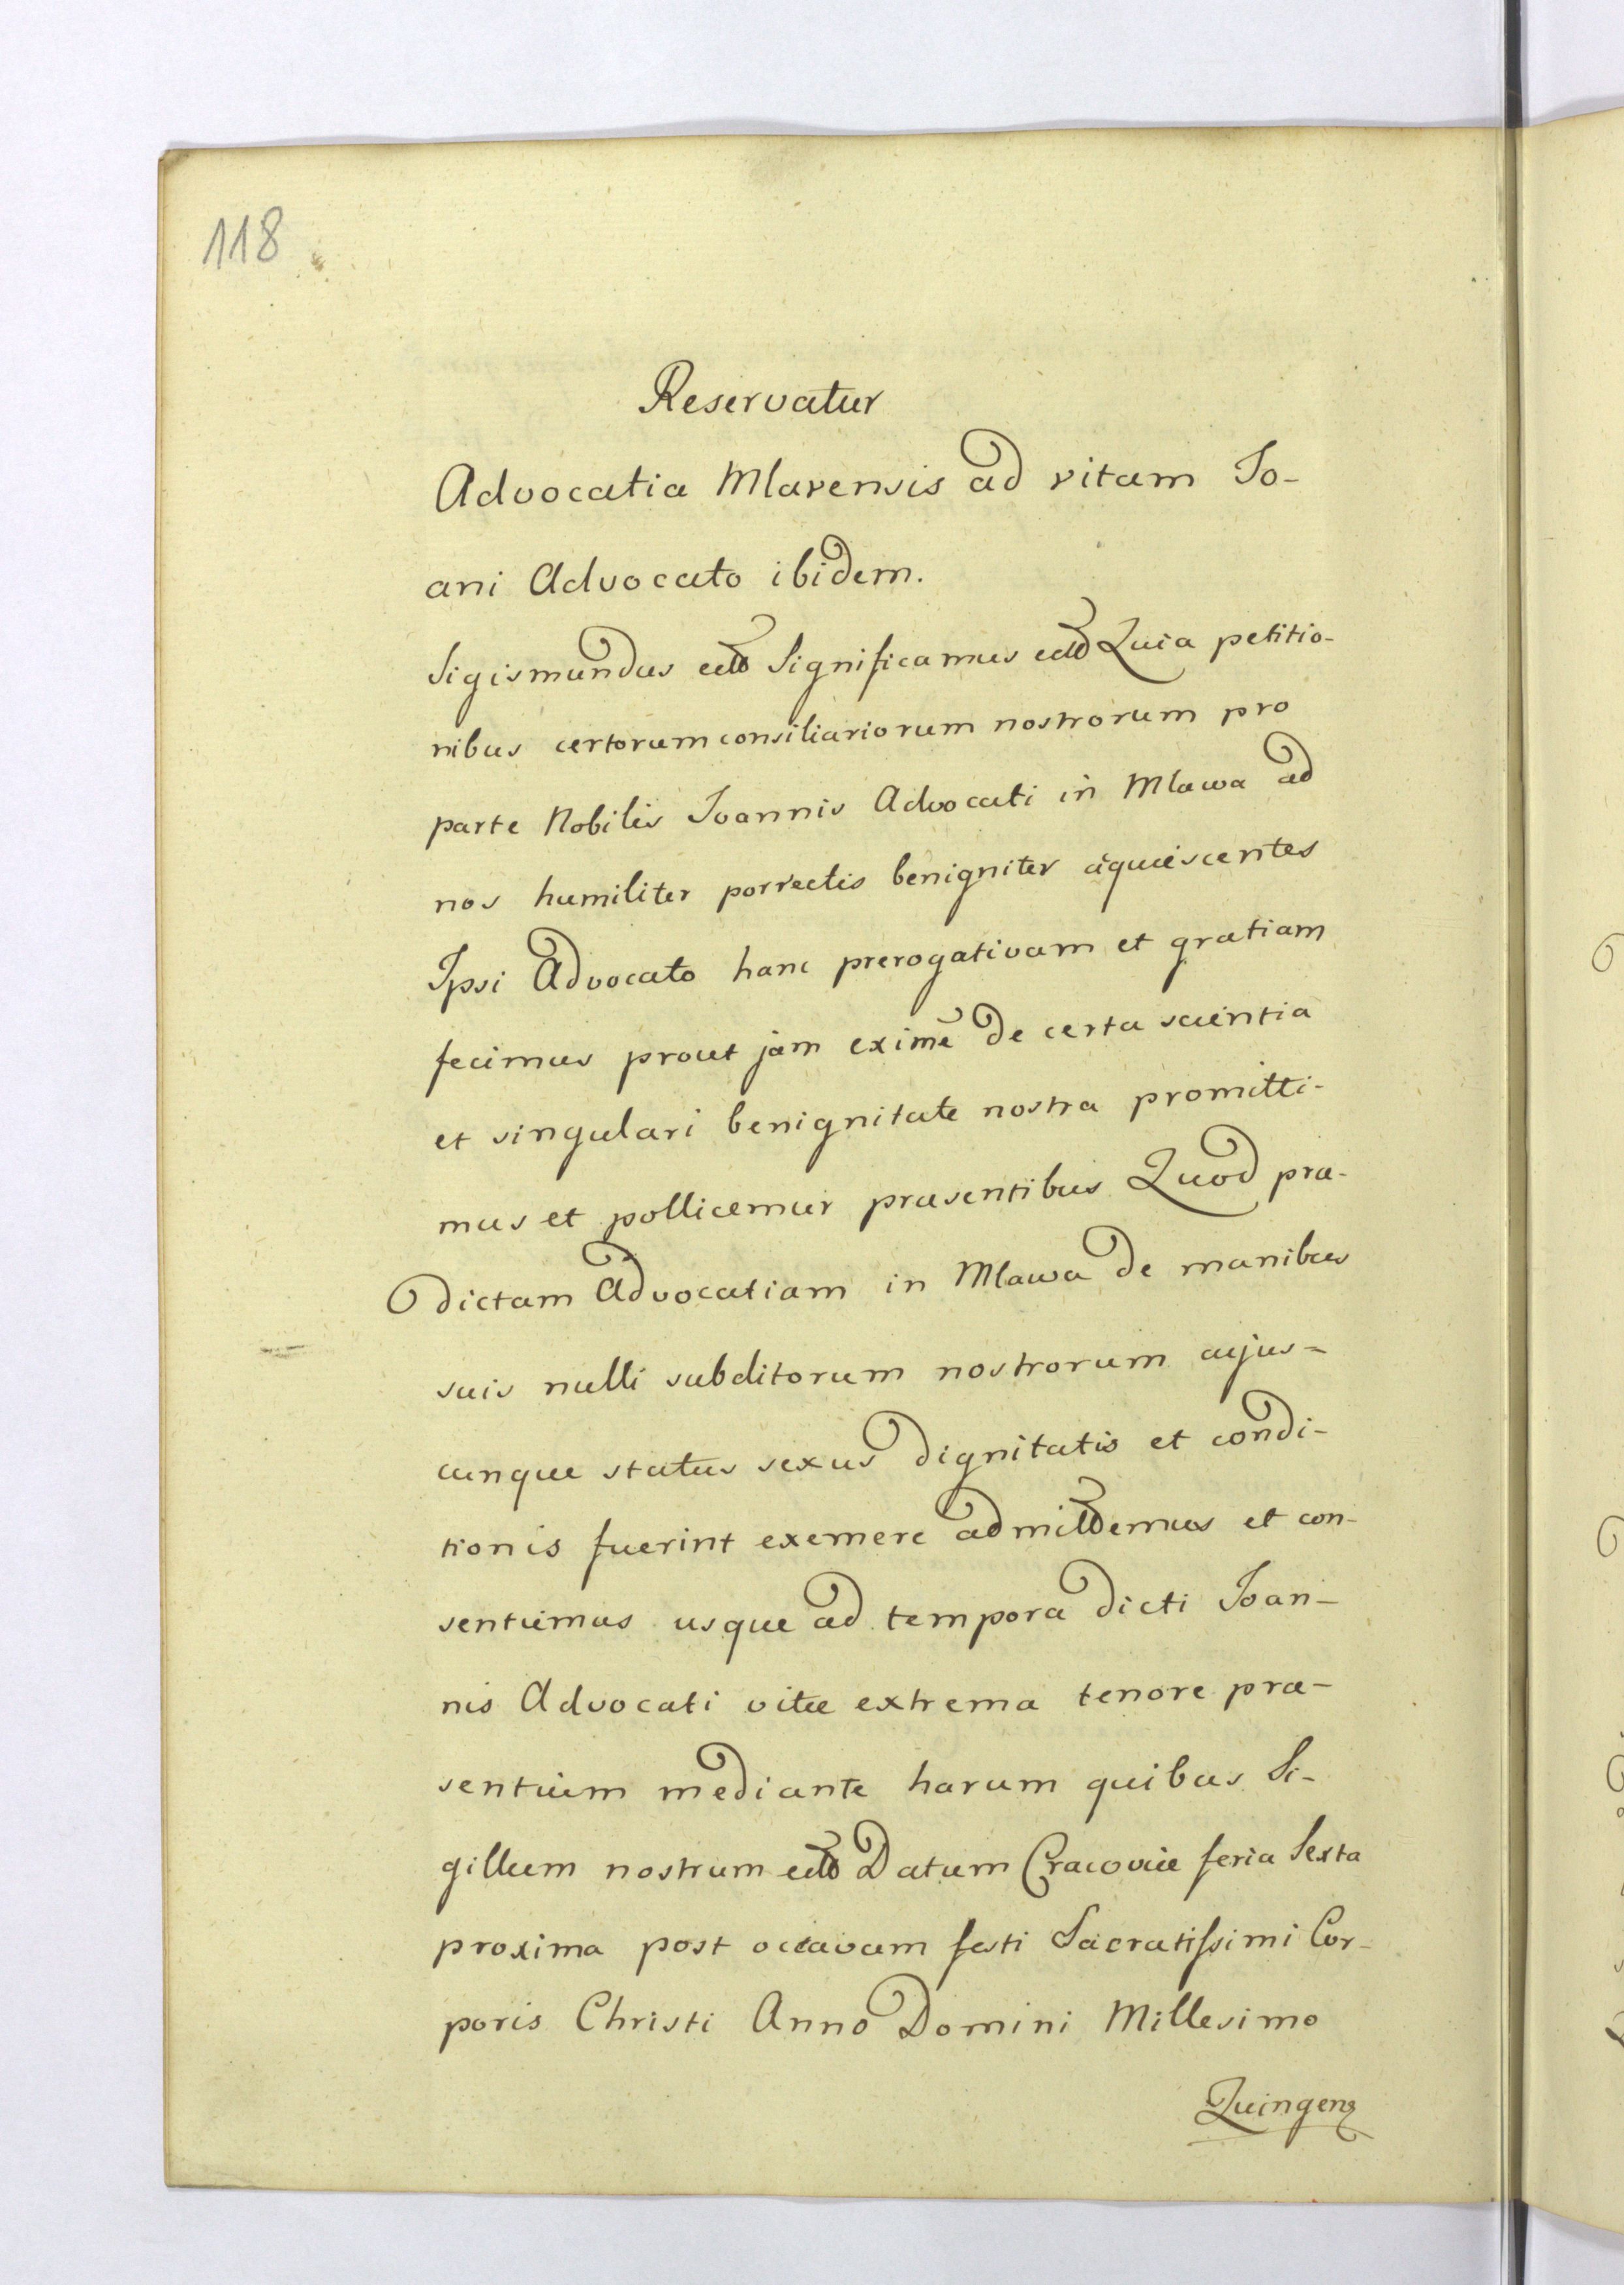 118
Reservatur
Advocatia Mlavensis ad vitam Jo-
ani Advocato ibidem.
Sigismundus Significamus Quia petitio-
nibus certorum consiliariorum nostrorum pro
parte Nobilis Joannis Advocati in Mlawa ad
nos humiliter porrectis benigniter aquiescentes
Ipsi Advocato hanc prerogativam et gratiam
fecimus prout jam de certa scientia
et singulari benignitate nostra promitti-
mus et pollicemur præsentibus Quod præ-
dictam Advocatiam in Mlawa de manibus
suis nulli subditorum nostrorum cujus=
cunque status sexus dignitatis et condi-
tionis fuerint exemere et con-
sentiemus usque ad tempora dicti Joan-
nis Advocati vitæ extrema tenore præ-
sentium mediante harum quibus Si-
gillum nostrum Datum Cracoviæ feria Sexta
proxima post octavam festi Sacratissimi Cor-
poris Christi Anno Domini Millesimo